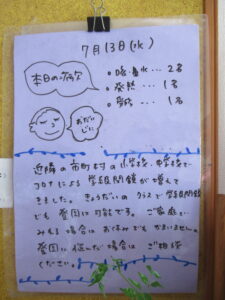 7月13日(水)
本日の病欠
咳・鼻水... 2名
発熱 ... 1名
... 1名
おだいじに
近隣の市町村の小学校・中学校で
コロナによる学級閉鎖が増えて
きました。きょうだいのクラスで学級閉鎖
でも登園は可能です。ご家庭で
みれる場合はお休みでもかまいません。
登園に悩んだ場合はご相談
ください。